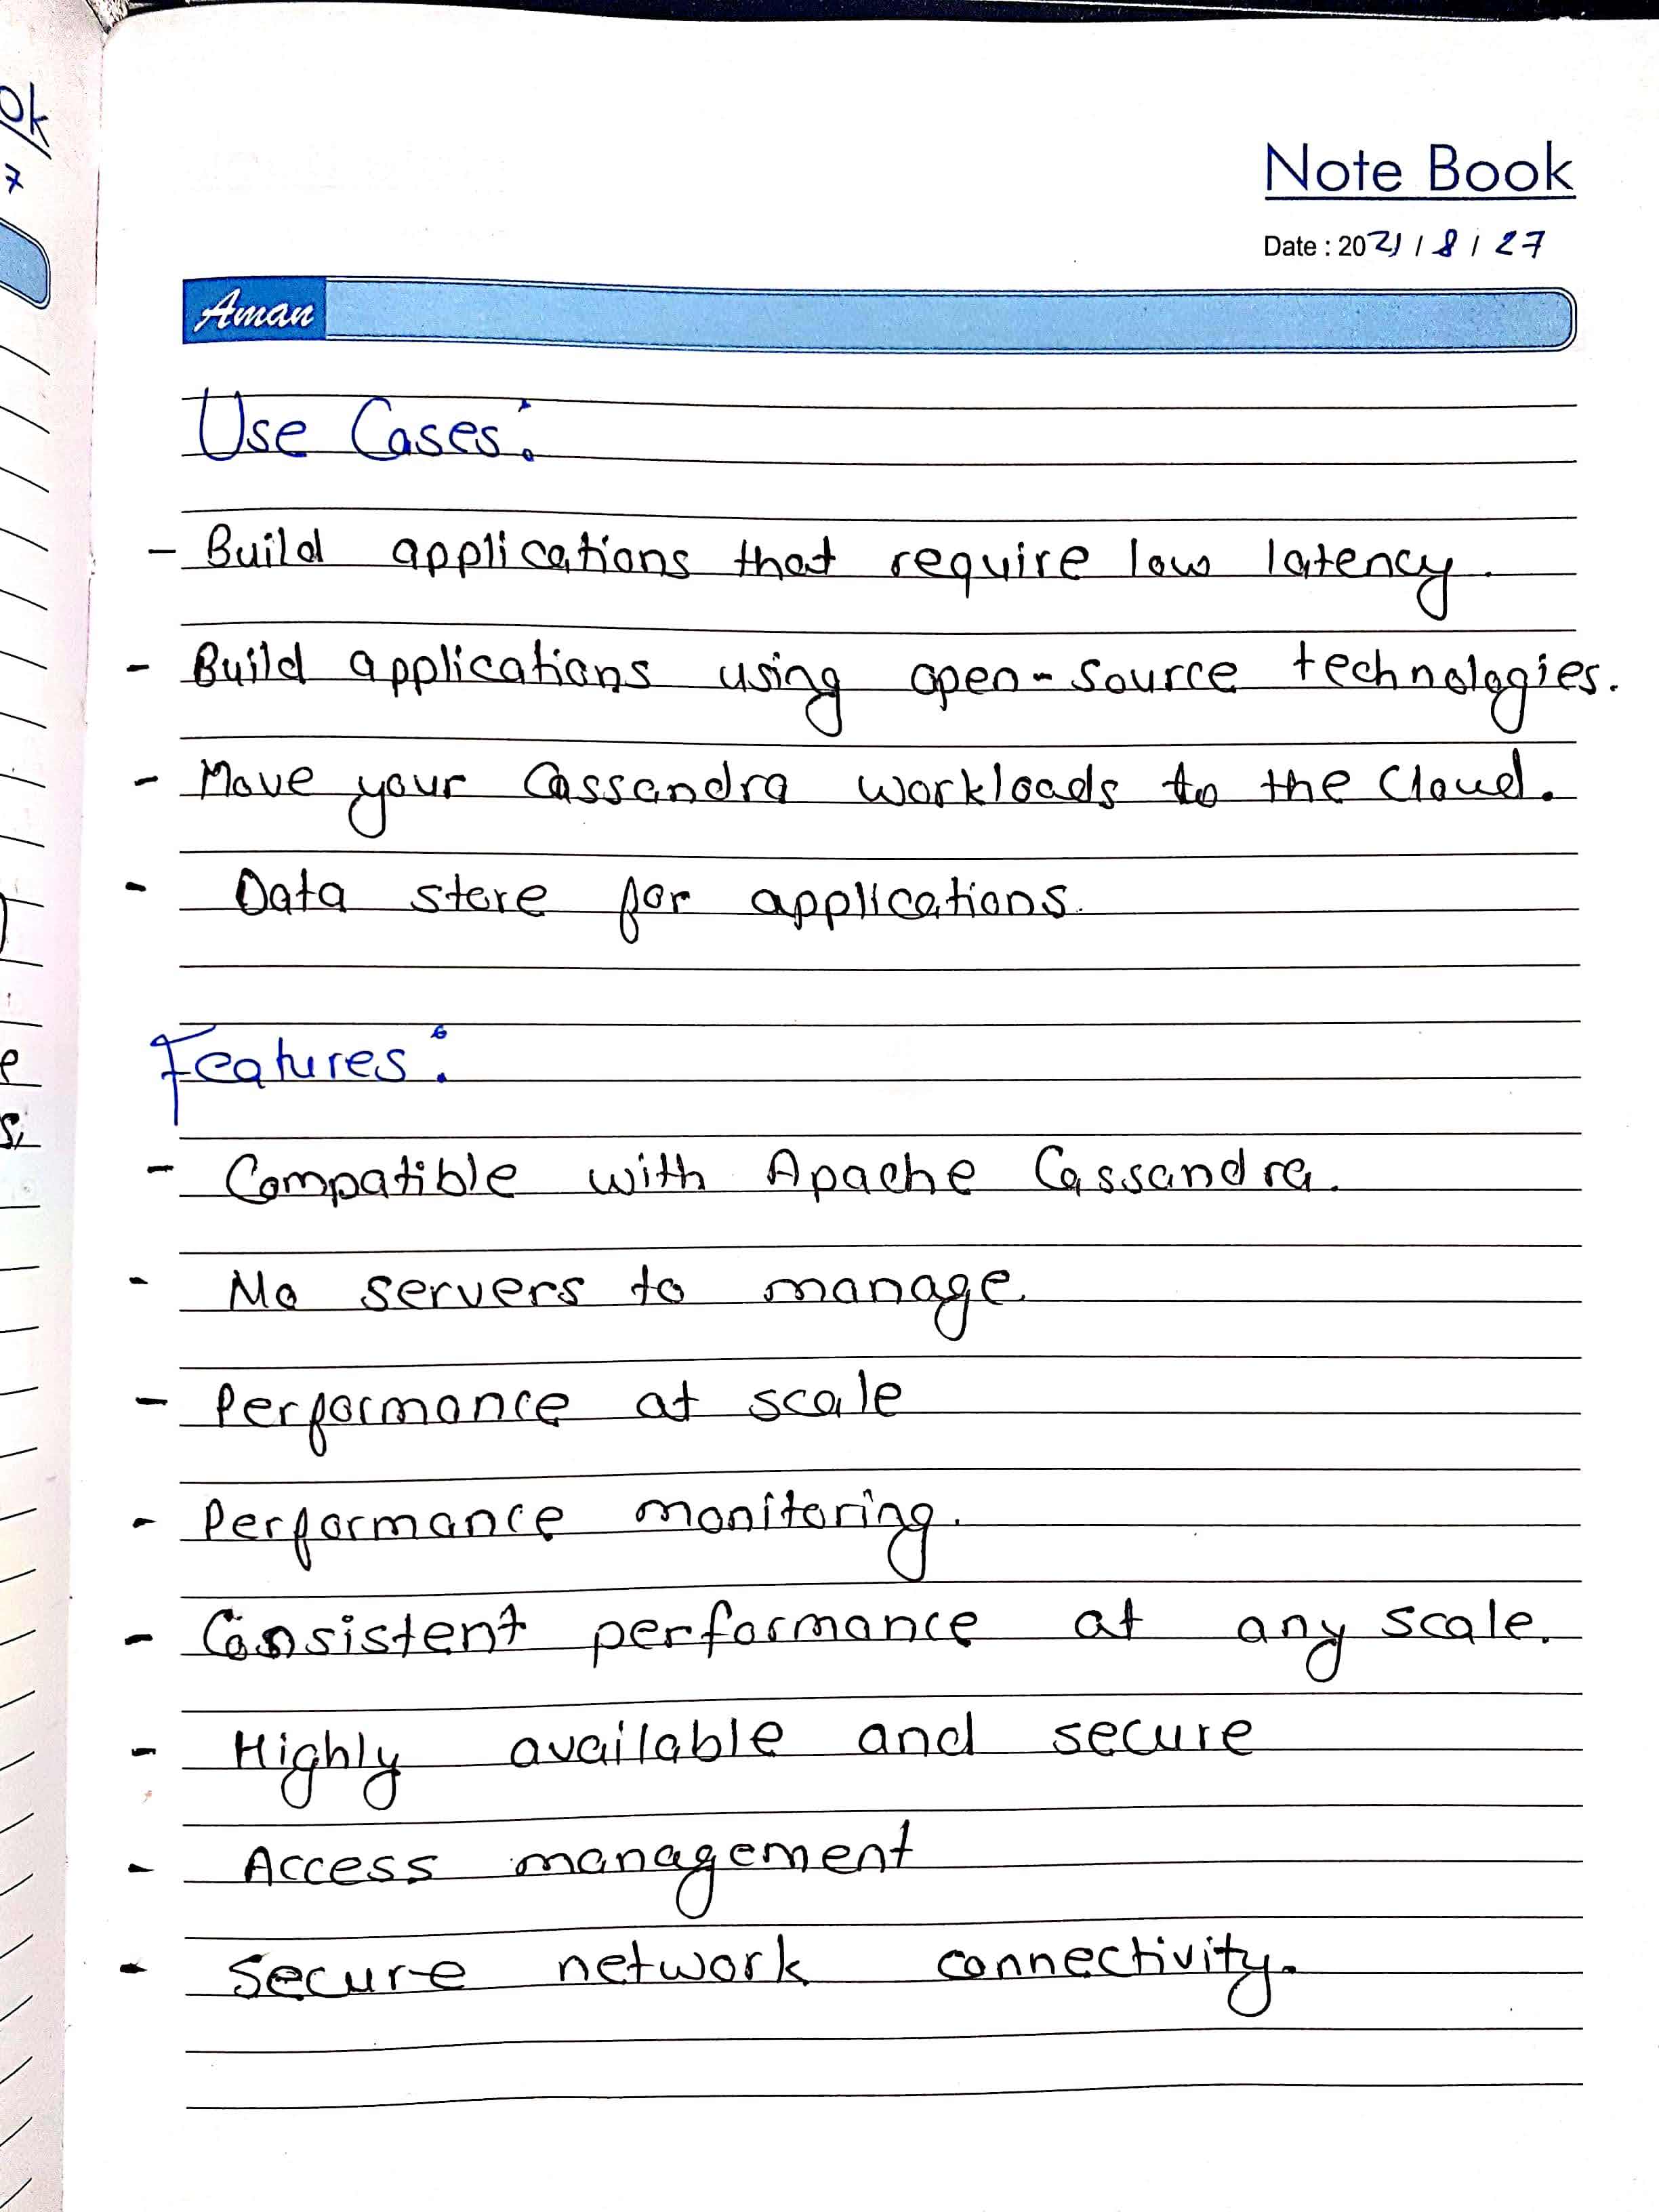 ok
7
Note Book
Date : 2021 / 8 / 27
Aman
Use Cases:
- Build applications that require low latency.
- Build applications using open-source technologies.
- Move your Cassandra workloads to the Cloud.
- Data store for applications.
Features:
- Compatible with Apache Cassandra.
- No servers to manage.
- Performance at scale
- Performance monitoring.
- Consistent performance at any scale.
- Highly available and secure
- Access management
- Secure network connectivity.